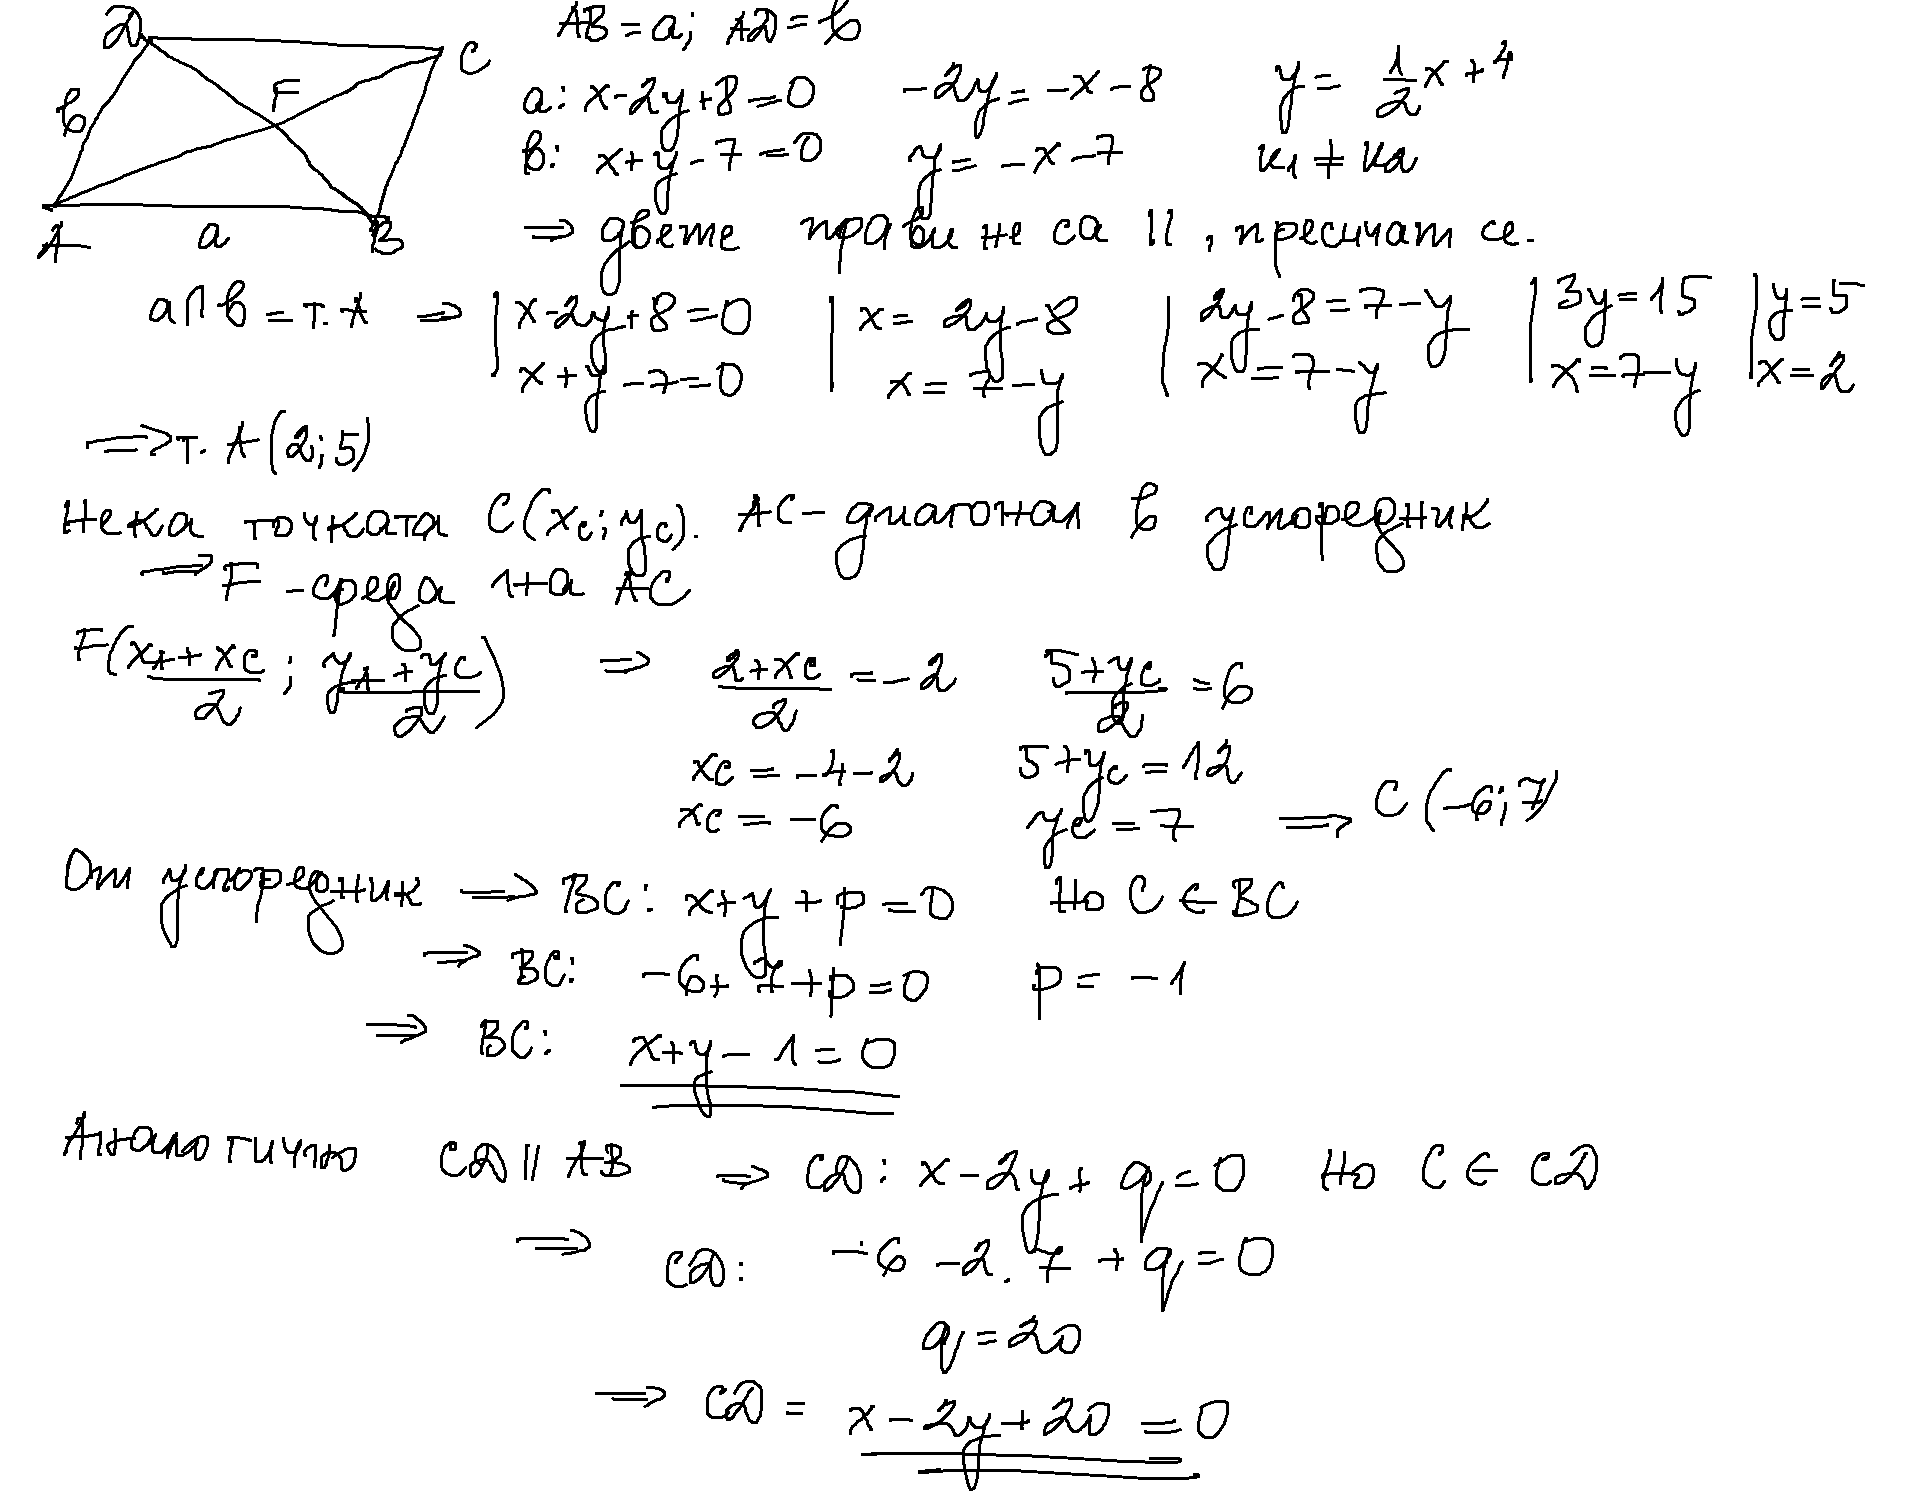 D C F в A a B
AB = a; AD = в
a: x-2y+8=0 -2y=-x-8 y= 1/2 x+4
в: x+y-7=0 y=-x-7 k1≠k2
⇒ двете прави не са ||, пресичат се.
a∩в = т.A ⇒ | x-2y+8=0 | x=2y-8 | 2y-8=7-y | 3y=15 | y=5
x+y-7=0 x=7-y x=7-y x=7-y x=2
⇒ т. A(2;5)
Нека точката C(xc; yc). AC - диагонал в успоредник
⇒ F - среда на AC
F((xA+xC)/2; (yA+yC)/2) ⇒ (2+xC)/2 = -2 (5+yC)/2 = 6
xC = -4-2 5+yC = 12
xC = -6 yC = 7 ⇒ C(-6;7)
От успоредник ⇒ BC: x+y+p=0 Но C ∈ BC
⇒ BC: -6+7+p=0 p=-1
⇒ BC: x+y-1=0
Аналогично CD || AB ⇒ CD: x-2y+q=0 Но C ∈ CD
⇒ CD: -6-2.7+q=0
q=20
⇒ CD = x-2y+20=0